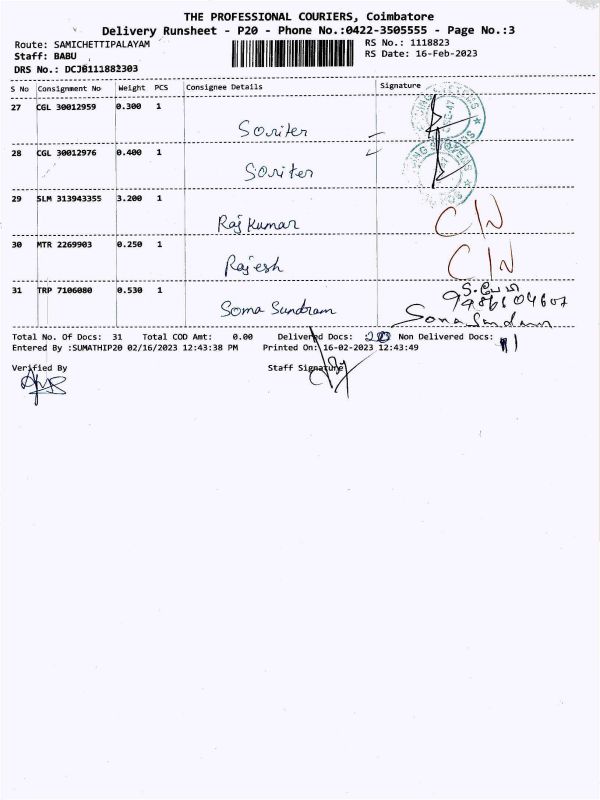 THE PROFESSIONAL COURIERS, Coimbatore
Delivery Runsheet - P20 - Phone No.:0422-3505555 - Page No.:3
Route: SAMICHETTIPALAYAM RS No.: 1118823
Staff: BABU RS Date: 16-Feb-2023
DRS No.: DCJB111882303
S No Consignment No Weight PCS Consignee Details Signature
27 CGL 30012959 0.300 1
Soriter
28 CGL 30012976 0.400 1
Soriter
29 SLM 313943355 3.200 1
Raj Kumar C/N
30 MTR 2269903 0.250 1
Rajesh C/N
31 TRP 7106080 0.530 1
Soma Sundram Soma Sundram
Total No. Of Docs: 31 Total COD Amt: 0.00 Delivered Docs: 20 Non Delivered Docs: 11
Entered By :SUMATHIP20 02/16/2023 12:43:38 PM Printed On: 16-02-2023 12:43:49
Verified By Staff Signature